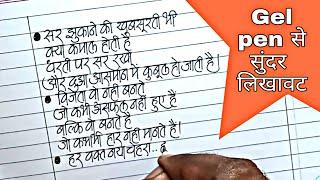 • सर झुकाने की खूबसूरती भी
क्या कमाल होती है
धरती पर सर रखो
और दुआ आसमान में कुबूल हो जाती है।
• विजेता वो नही बनते
जो कभी असफल नही हुए है
बल्कि वो बनते है
जो कभी हार नही मानते है।
• हर वक्त नया चेहरा..
Gel
pen से
सुंदर
लिखावट